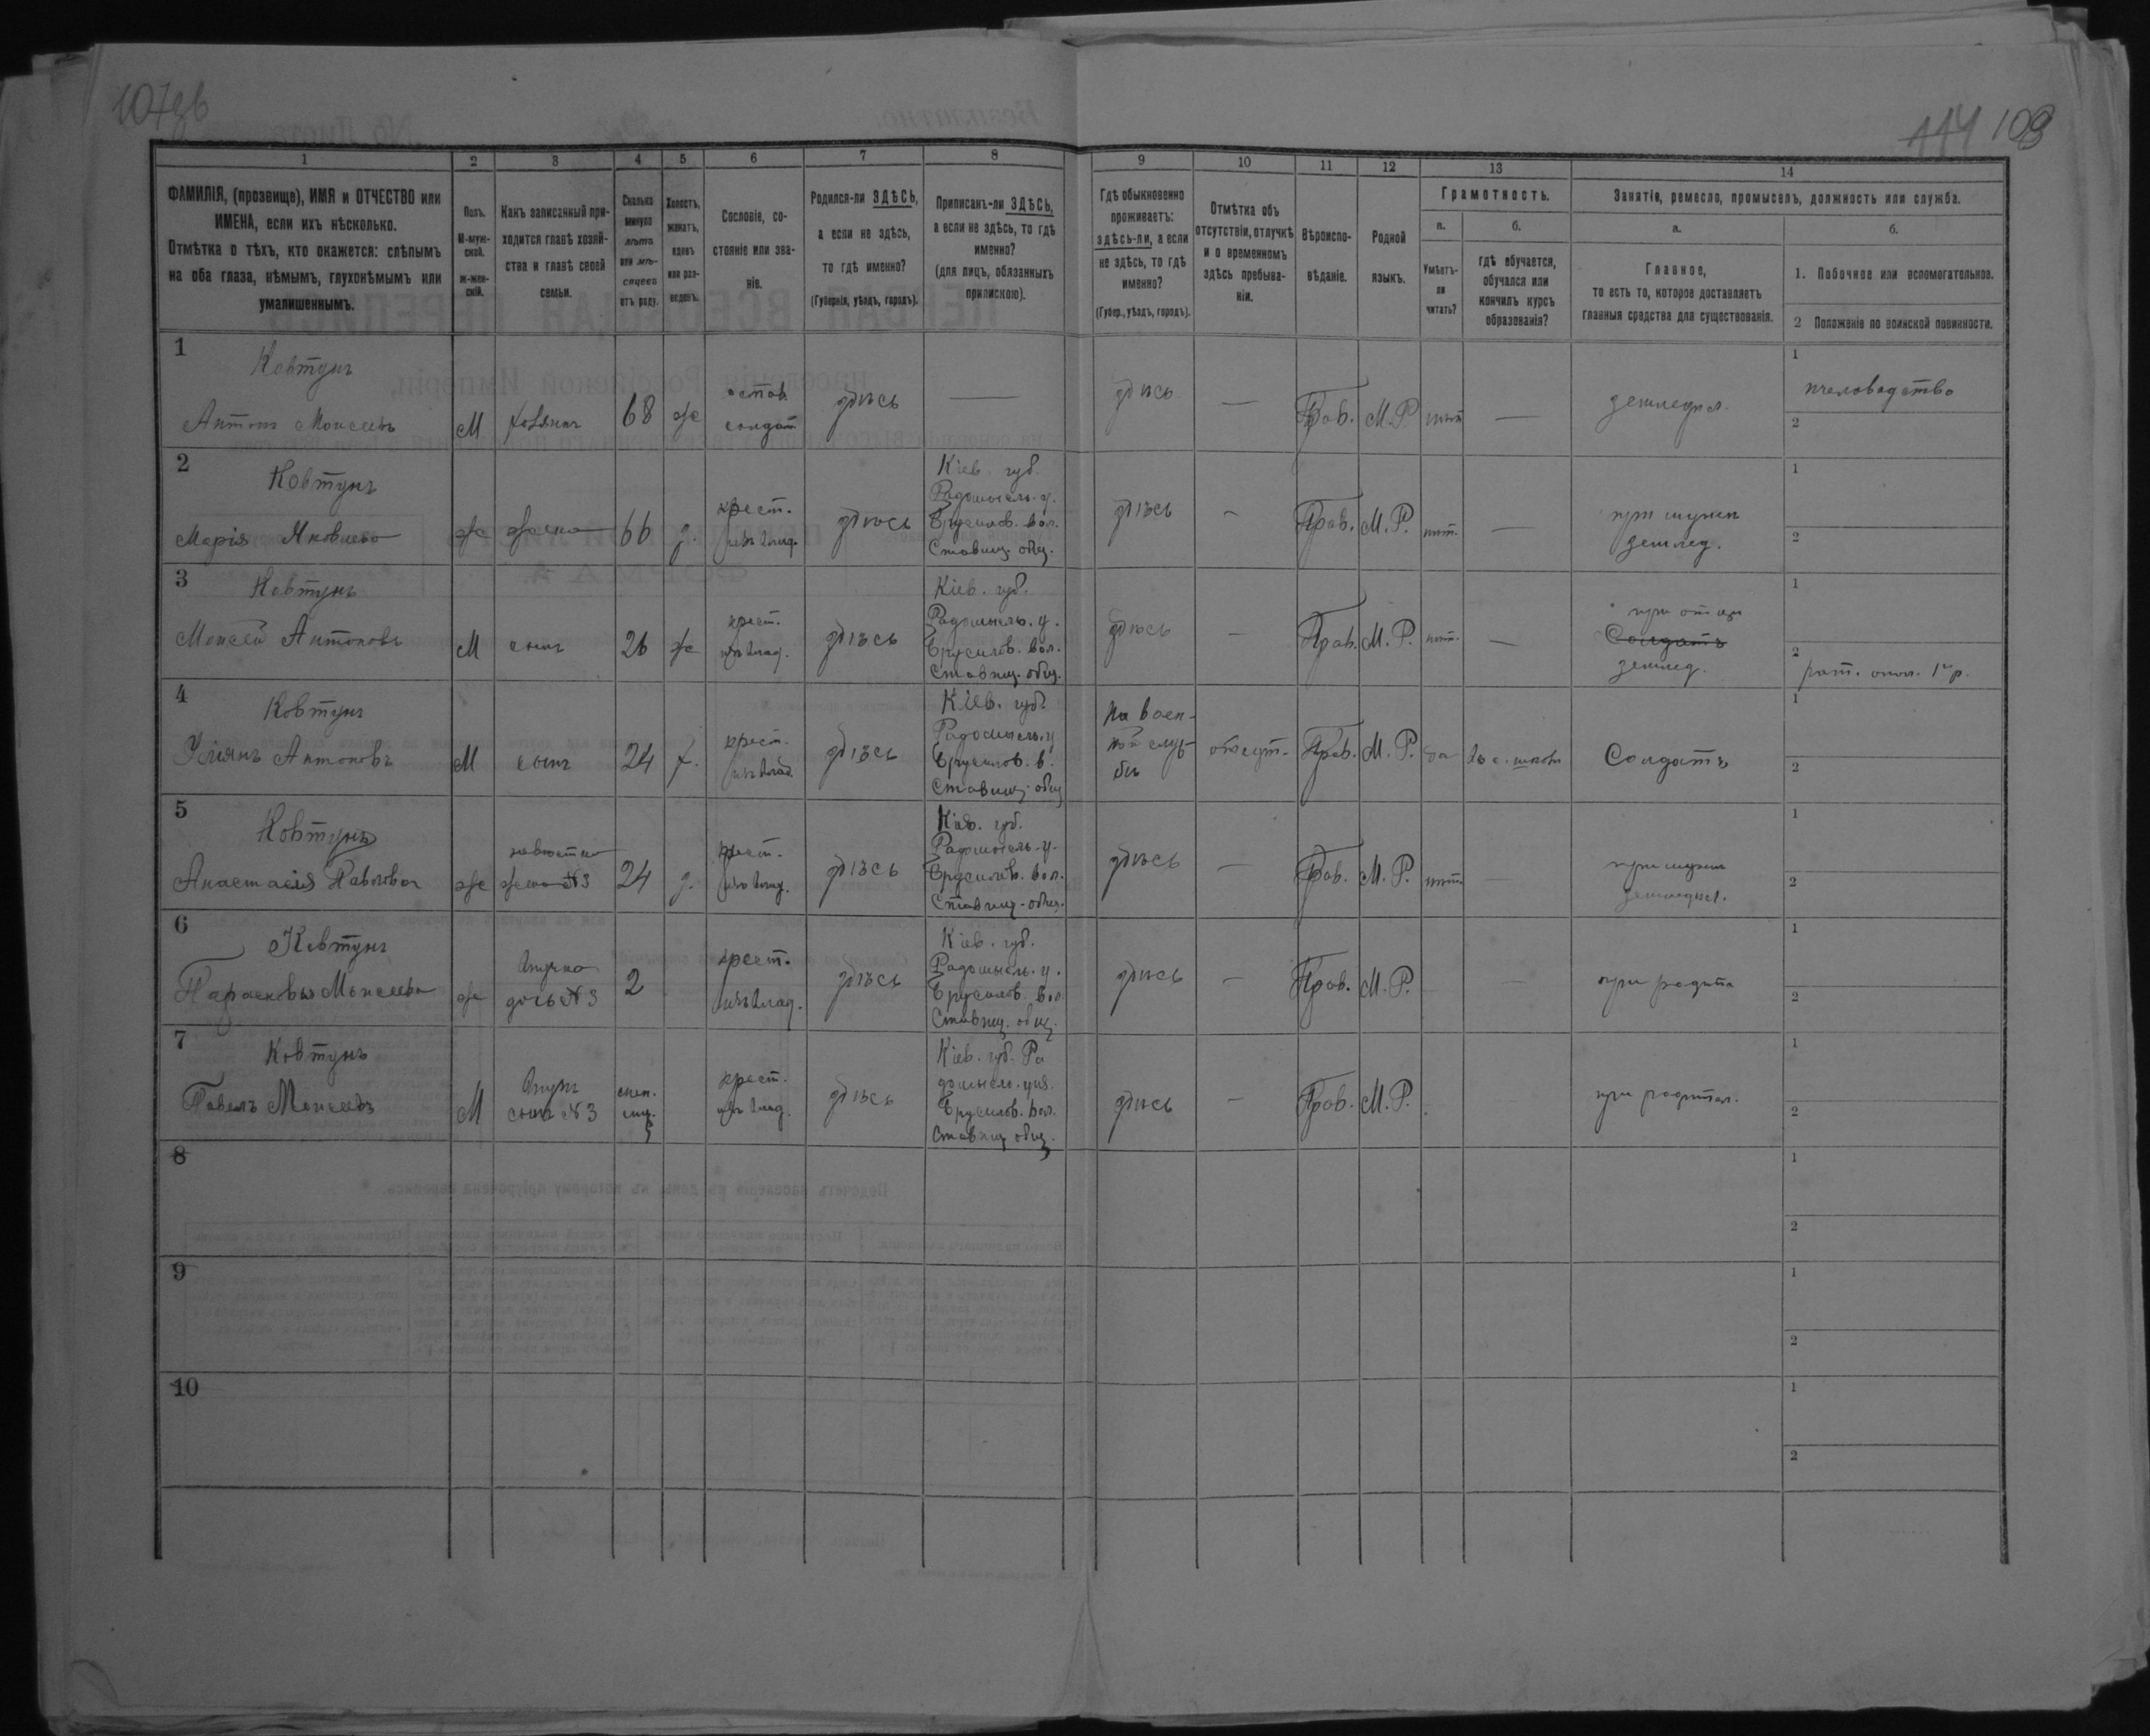 107об
114 109
1
2
3
4
5
6
7
8
9
10
11
12
13
14
ФАМИЛІЯ, (прозвище), ИМЯ и ОТЧЕСТВО или
ИМЕНА, если ихъ нѣсколько.
Отмѣтка о тѣхъ, кто окажется: слѣпымъ
на оба глаза, нѣмымъ, глухонѣмымъ или
умалишеннымъ.
Полъ.
М-муж-
ской.
ж-жен-
скій.
Какъ записанный при-
ходится главѣ хозяй-
ства и главѣ своей
семьи.
Сколько
минуло
лѣтъ
или мѣ-
сяцевъ
отъ роду.
Холостъ,
женатъ,
вдовъ
или раз-
веденъ.
Сословіе, со-
стояніе или зва-
ніе.
Родился-ли ЗДѢСЬ,
а если не здѣсь,
то гдѣ именно?
(Губернія, уѣздъ, городъ).
Приписанъ-ли ЗДѢСЬ,
а если не здѣсь, то гдѣ
именно?
(для лицъ, обязанныхъ
припискою).
Гдѣ обыкновенно
проживаетъ:
здѣсь-ли, а если
не здѣсь, то гдѣ
именно?
(Губер., уѣздъ, городъ).
Отмѣтка объ
отсутствіи, отлучкѣ
и о временномъ
здѣсь пребыва-
ніи.
Вѣроиспо-
вѣданіе.
Родной
языкъ.
Грамотность.
а.
Умѣетъ-
ли
читать?
б.
гдѣ обучается,
обучался или
кончилъ курсъ
образованія?
Занятіе, ремесло, промыселъ, должность или служба.
а.
Главное,
то есть то, которое доставляетъ
главныя средства для существованія.
б.
1. Побочное или вспомогательное.
2 Положеніе по воинской повинности.
1
Ковтунъ
Антонъ Моисеевъ
М
хозяинъ
68
ж
отст.
солдат
здѣсь
—
здѣсь
—
Прав.
М.Р
нѣт
—
земледѣл.
1
пчеловодство
2
2
Ковтунъ
Марія Яковлева
ж
жена
66
з.
крест.
изъ влад.
здѣсь
Кіев. губ.
Радомысль. у.
Брусилов. вол.
Ставищ. общ.
здѣсь
—
Прав.
М. Р.
нѣт.
—
при мужѣ
землед.
1
2
3
Ковтунъ
Моисей Антоновъ
М
сынъ
26
ж
крест.
изъ влад.
здѣсь
Кіев. губ.
Радомысль. у.
Брусилов. вол.
Ставищ. общ.
здѣсь
—
Прав.
М. Р.
нѣт.
—
при отцѣ
Солдатъ
землед.
1
2
рат. опол. 1го р.
4
Ковтунъ
Уліянъ Антоновъ
М
сынъ
24
х.
крест.
изъ влад.
здѣсь
Кіев. губ.
Радомысль. у
Брусилов. в.
Ставищ. общ
На воен-
ной служ-
бѣ
отсут.
Прав.
М. Р.
да
въ с. школѣ
Солдатъ
1
2
5
Ковтунъ
Анастасія Павлова
ж
невѣстка
жена №3
24
з.
крест.
изъ влад.
здѣсь
Кіев. губ.
Радомысль. у.
Брусилов. вол.
Ставищ. общ.
здѣсь
—
Прав.
М. Р.
нѣт.
—
при мужѣ
земледѣл.
1
2
6
Ковтунъ
Парасковія Моисеева
ж
внучка
дочь №3
2
крест.
изъ влад.
здѣсь
Кіев. губ.
Радомысль. у.
Брусилов. вол.
Ставищ. общ.
здѣсь
—
Прав.
М. Р.
—
при родит.
1
2
7
Ковтунъ
Павелъ Моисеевъ
М
внукъ
сынъ №3
крест.
изъ влад.
здѣсь
Кіев. губ. Ра
домысль. уѣз.
Брусилов. вол.
Ставищ общ.
здѣсь
—
Прав.
М. Р.
при родител.
1
2
8
1
2
9
1
2
10
1
2